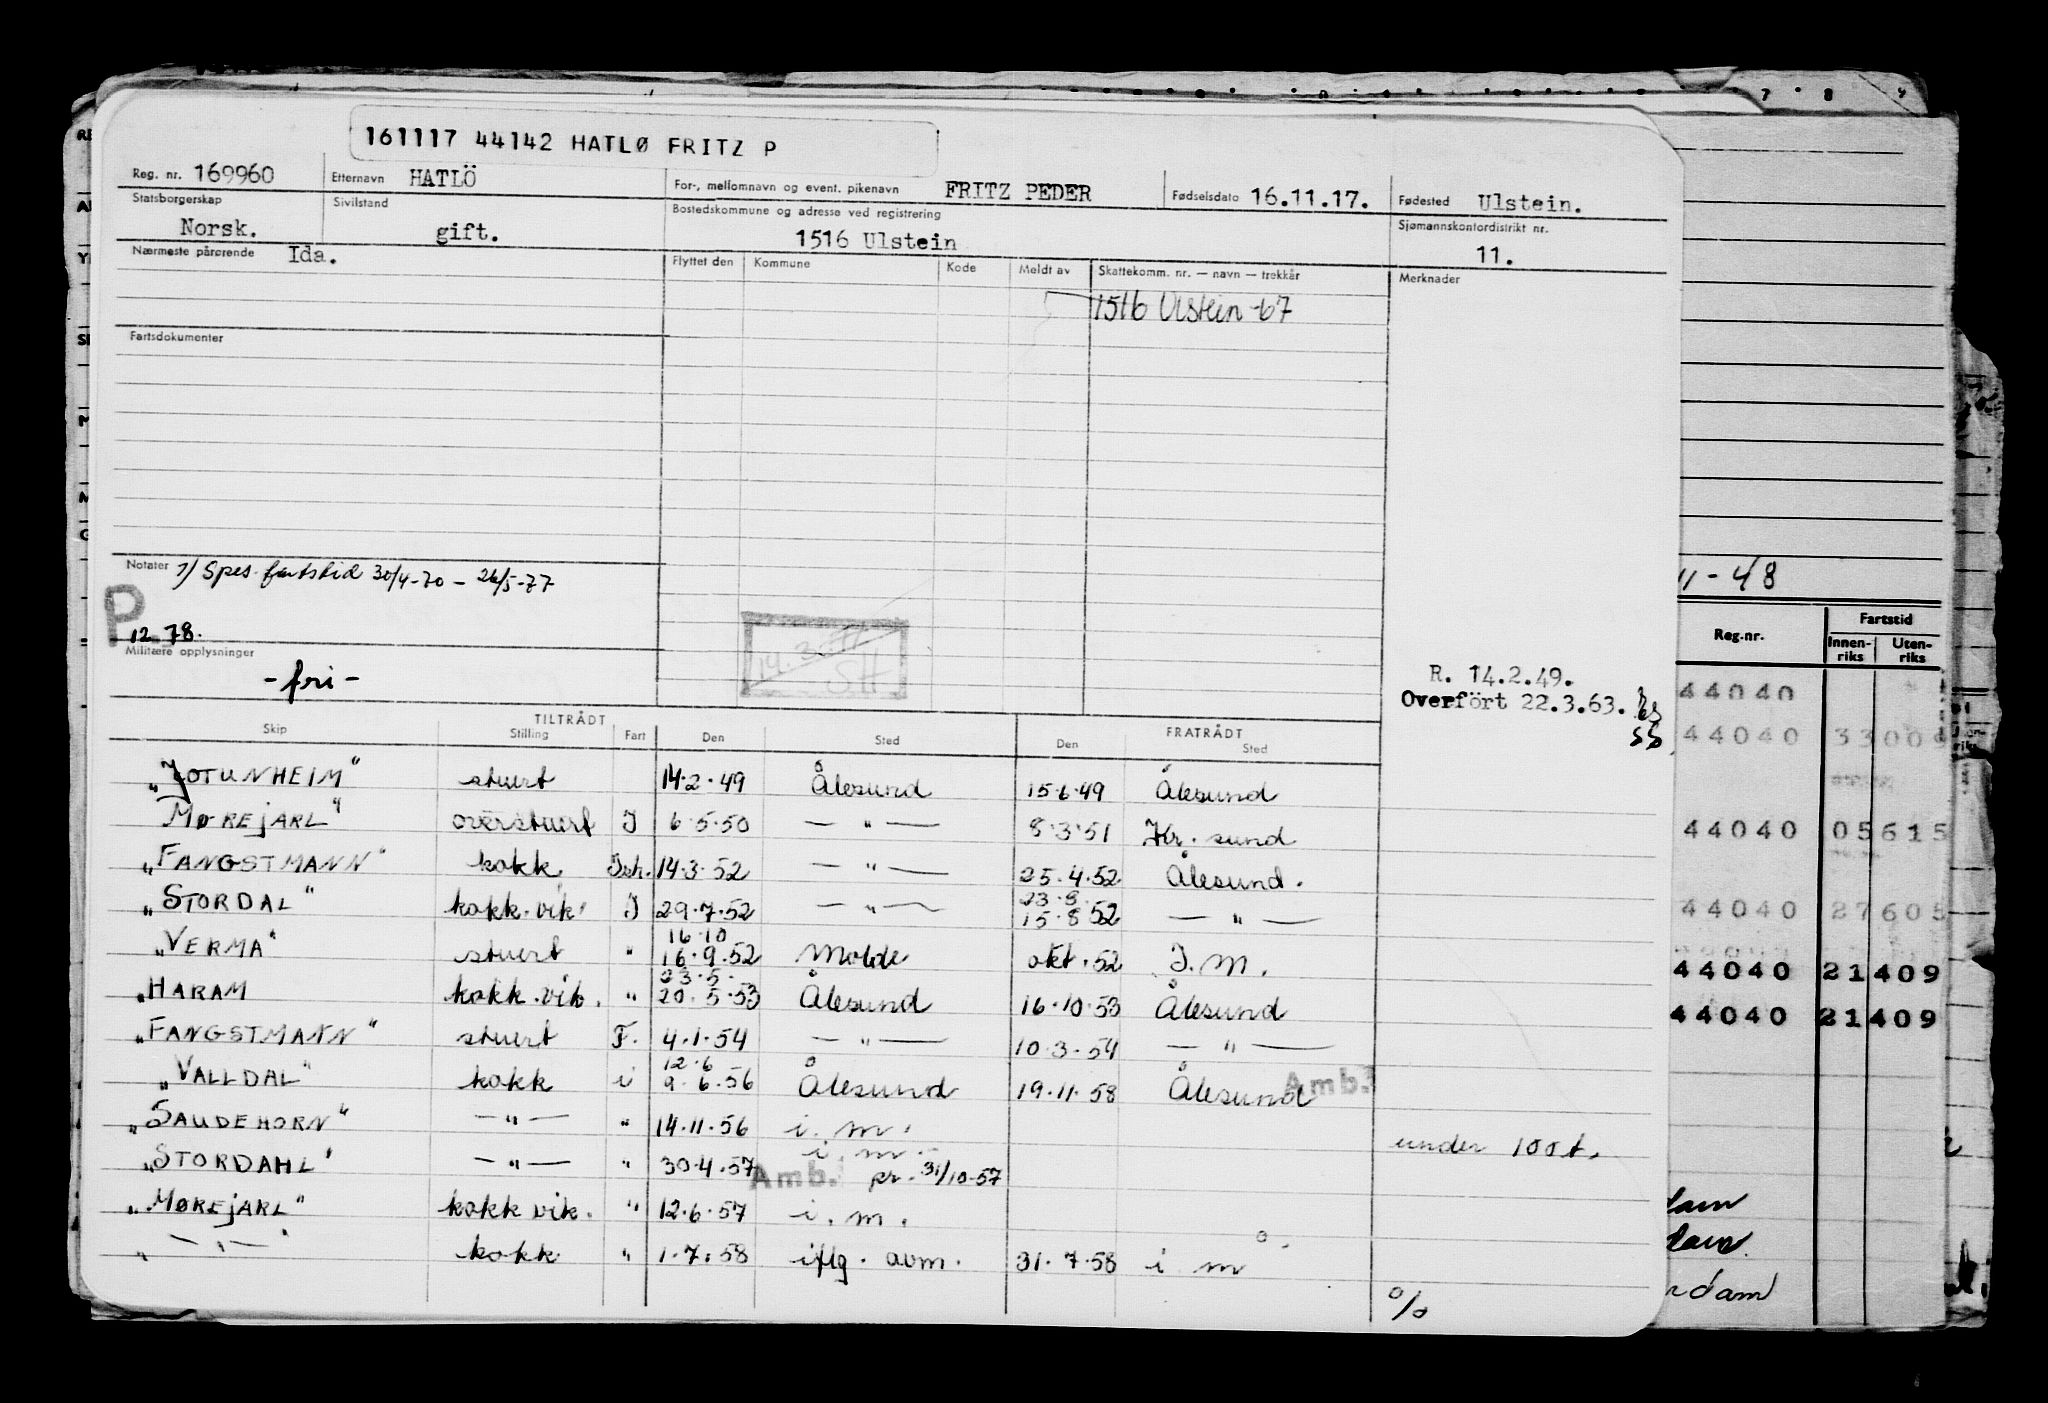 161117 44142 HATLØ FRITZ P
Reg. nr. 169960 Etternavn HATLÖ For-, mellomnavn og event. pikenavn FRITZ PEDER Fødselsdato 16.11.17. Fødested Ulstein.
Statsborgerskap Norsk. Sivilstand gift. Bostedskommune og adresse ved registrering 1516 Ulstein Sjømannskontordistrikt nr. 11.
Nærmeste pårørende Ida. Flyttet den Kommune Kode Meldt av Skattekomm. nr. — navn — trekkår Merknader
1516 Ulstein -67
Fartsdokumenter
Notater 7/ Spes. fartstid 30/4-70 – 26/5-77
P
12.78.
Militære opplysninger
- fri -
14.3.
SH
R. 14.2.49.
Overfört 22.3.63.
TILTRÅDT FRATRÅDT
Skip Stilling Fart Den Sted Den Sted
„JOTUNHEIM" stuert 14.2.49 Ålesund 15.6.49 Ålesund
MØREJARL" overstuert I 6.5.50 — " — 8.3.51 Kr. sund
„FANGSTMANN" kokk Ish. 14.3.52 — " — 25.4.52 Ålesund.
23.8.
„STORDAL" kokk.vik. I 29.7.52 — " — 15.8.52 — " —
16.10
„VERMA" stuert " 16.9.52 Molde okt.52 I.M.
23.5.
„HARAM kokk.vik. " 20.5.53 Ålesund 16.10.53 Ålesund
„FANGSTMANN" stuert F. 4.1.54 — " — 10.3.54 — " —
12.6
„VALLDAL" kokk i 9.6.56 Ålesund 19.11.58 Ålesund Amb.
„SAUDEHORN" — " — " 14.11.56 i.m. under 100t.
i.m.
„STORDAHL" — " — " 30.4.57 Amb. pr. 31/10-57
„MØREJARL" kokk vik. " 12.6.57 i.m.
„ — " — " kokk " 1.7.58 iflg. avm. 31.7.58 i m
%
7 8 9
11-48
Reg.nr. Fartstid
Innenriks Utenriks
44040
44040 33009
44040 05615
44040 27605
44040 21409
44040 21409
dam